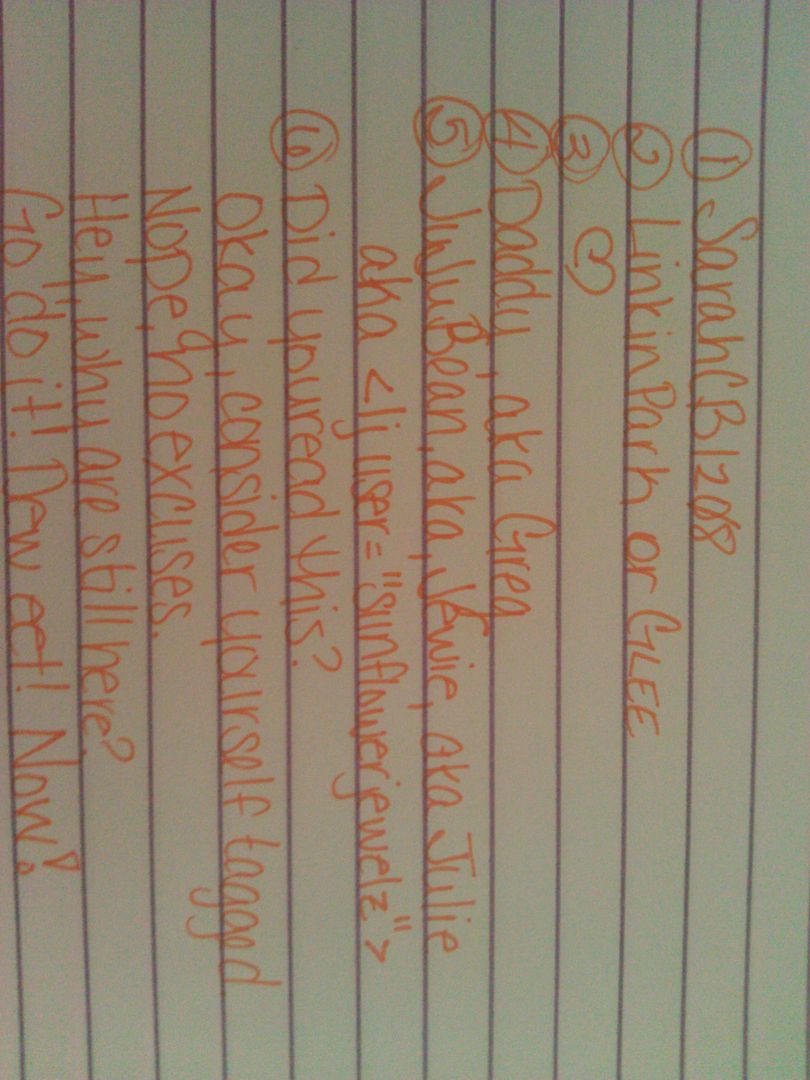 ① SarahCB1208
② Linkin Park or GLEE
③ :)
④ Daddy, aka Greg
⑤ JuJu Bean, aka, Jewie, aka Julie
aka <lj user="sunflowerjewelz">
⑥ Did you read this?
Okay, consider yourself tagged
Nope, no excuses.
Hey, why are still here?
Go do it! Dew eet! Now!